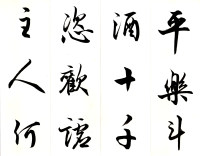 平樂斗
酒十千
恣歡謔
主人何